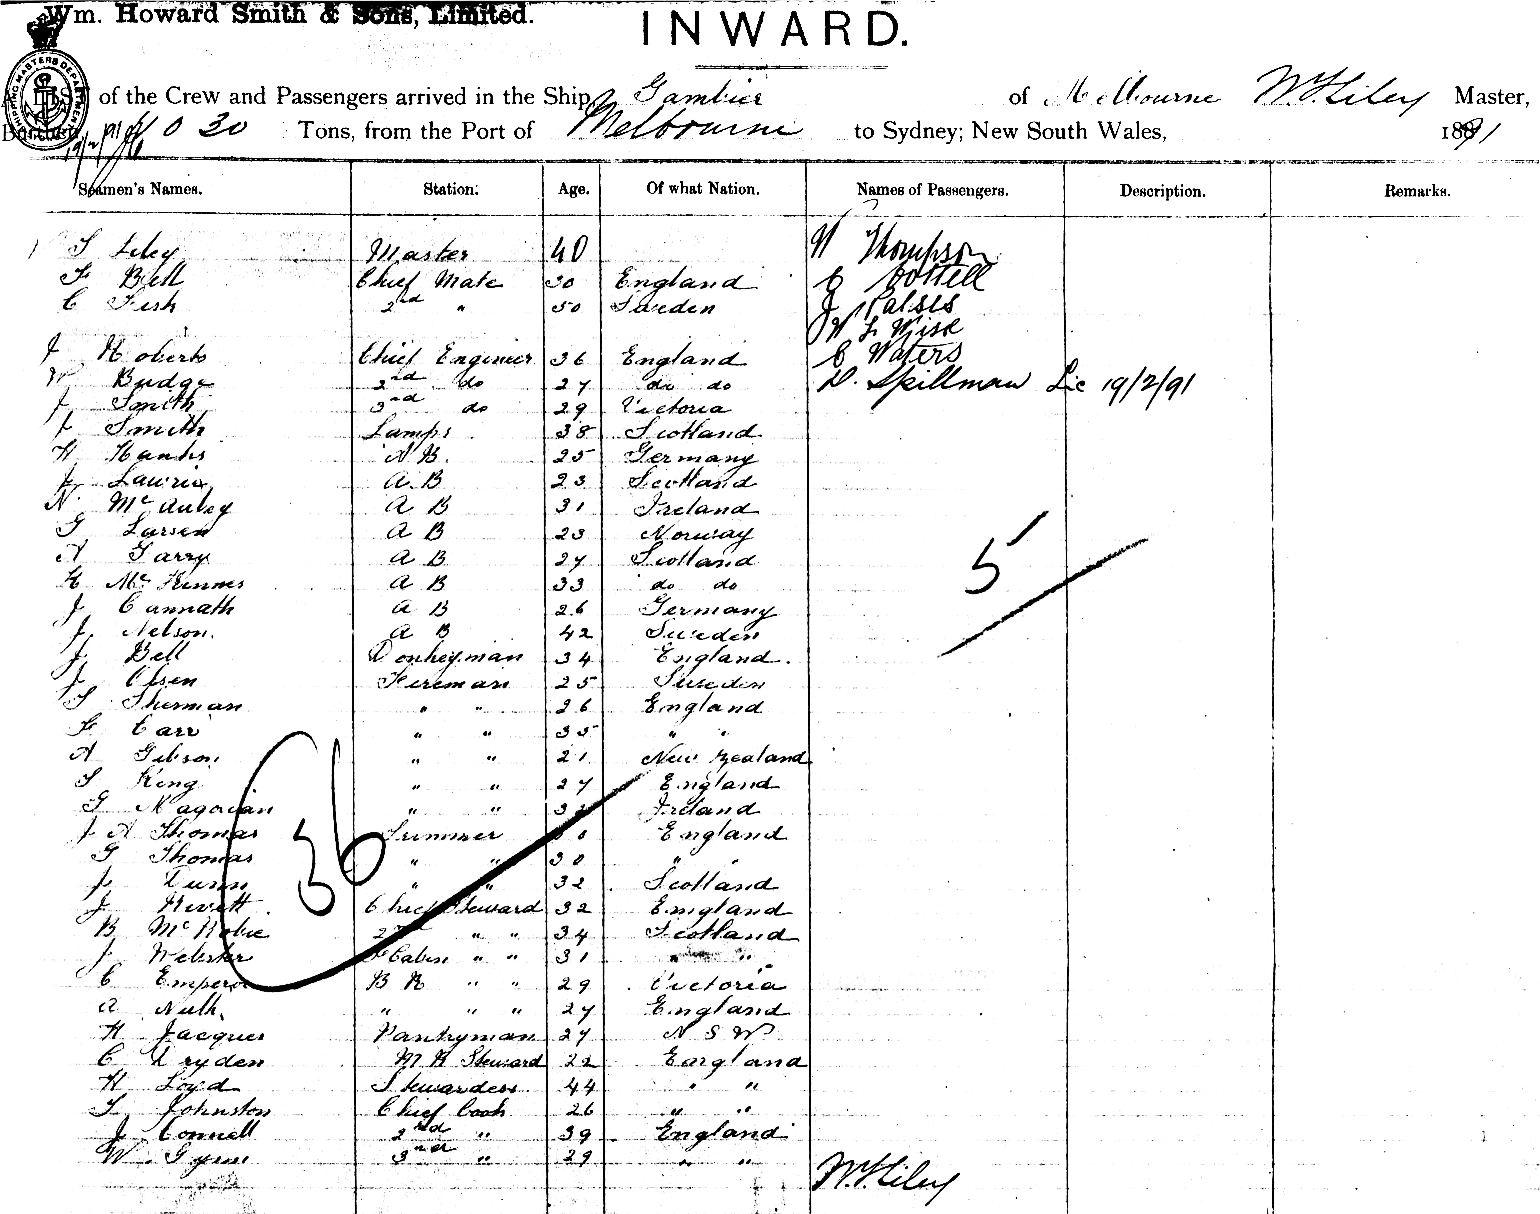 Wm. Howard Smith & Sons, Limited.
INWARD.
of the Crew and Passengers arrived in the Ship Gambier of Melbourne Master,
Tons, from the Port of Melbourne to Sydney; New South Wales, 1891
Seamen's Names. Station. Age. Of what Nation. Names of Passengers. Description. Remarks.
Master 40 W Thompson
F Bell Chief Mate 30 England C Cottell
C Fish 2nd " 50 Sweden J
W L Wise
J Roberts Chief Enginier 36 England C Waters
W Budge 2nd do 27 do do D. Spillman Lic 19/2/91
J Smith 3rd do 29 Victoria
J Smith Lamps 38 Scotland
H A B. 25 Germany
J Lawrie A.B 23 Scotland
N McAuley A B 31 Ireland
G Larsen A B 23 Norway
A Garry A B 27 Scotland
McKinnes A B 33 do do
J Cannath A B 26 Germany
J. Nelson. A B 42 Sweden
J. Bell Donkeyman 34 England.
J Olsen Fireman 25 Sweden
S Sherman " " 26 England
F Carr " " 35 " "
A Gibson " " 21 New Zealand
S King " " 27 England
G Magorian " " Ireland
J A Thomas Trimmer England
G Thomas " " 30 " "
J Dunn " " 32 Scotland
J Chief Steward 32 England
B McRobie 2nd " " 34 Scotland
J Webster F Cabin " " 31 " "
C Emperor B R " " 29 Victoria
A " " " 27 England
H Jacques Pantryman 27 N S W
C Dryden M R Steward 22 England
H Loyd Stewardess 44 " "
Johnston Chief Cook 26 " "
J Connell 2nd " 39 England
W. 3rd " 29 " "
5
36